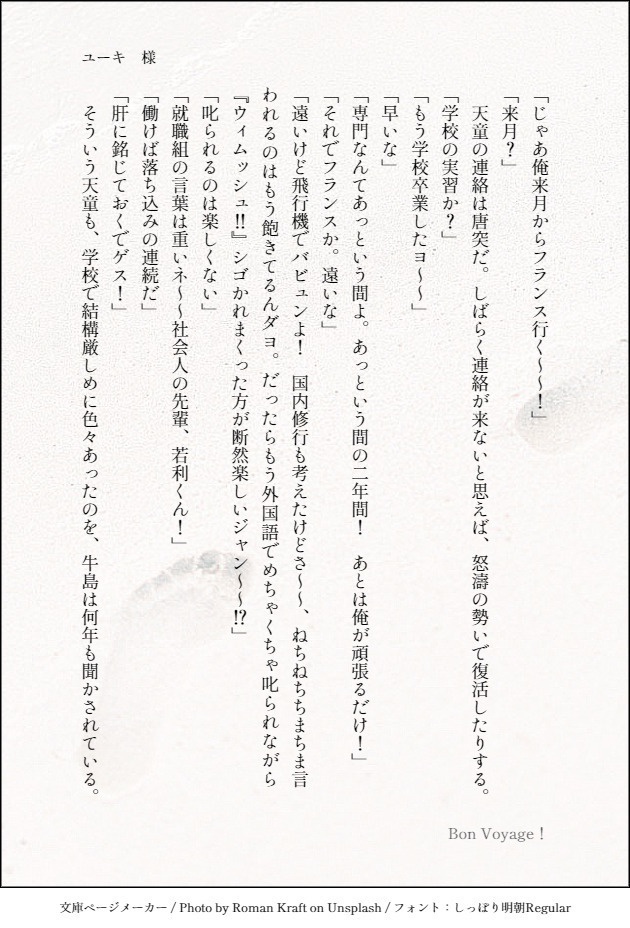 ユーキ　様
「じゃあ俺来月からフランス行く〜〜！」
「来月？」
　天童の連絡は唐突だ。しばらく連絡が来ないと思えば、怒濤の勢いで復活したりする。
「学校の実習か？」
「もう学校卒業したヨ〜〜」
「早いな」
「専門なんてあっという間よ。あっという間の二年間！　あとは俺が頑張るだけ！」
「それでフランスか。遠いな」
「遠いけど飛行機でバビュンよ！　国内修行も考えたけどさ〜〜、ねちねちちまちま言
われるのはもう飽きてるんダヨ。だったらもう外国語でめちゃくちゃ叱られながら
『ウィムッシュ‼』シゴかれまくった方が断然楽しいジャン〜〜⁉」
「叱られるのは楽しくない」
「就職組の言葉は重いネ〜〜社会人の先輩、若利くん！」
「働けば落ち込みの連続だ」
「肝に銘じておくでゲス！」
　そういう天童も、学校で結構厳しめに色々あったのを、牛島は何年も聞かされている。
Bon Voyage！
文庫ページメーカー / Photo by Roman Kraft on Unsplash / フォント：しっぽり明朝Regular